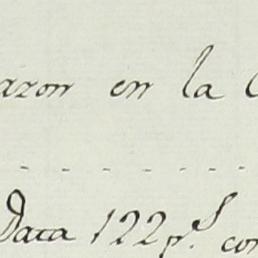 azon en la
Data 122 p.s con